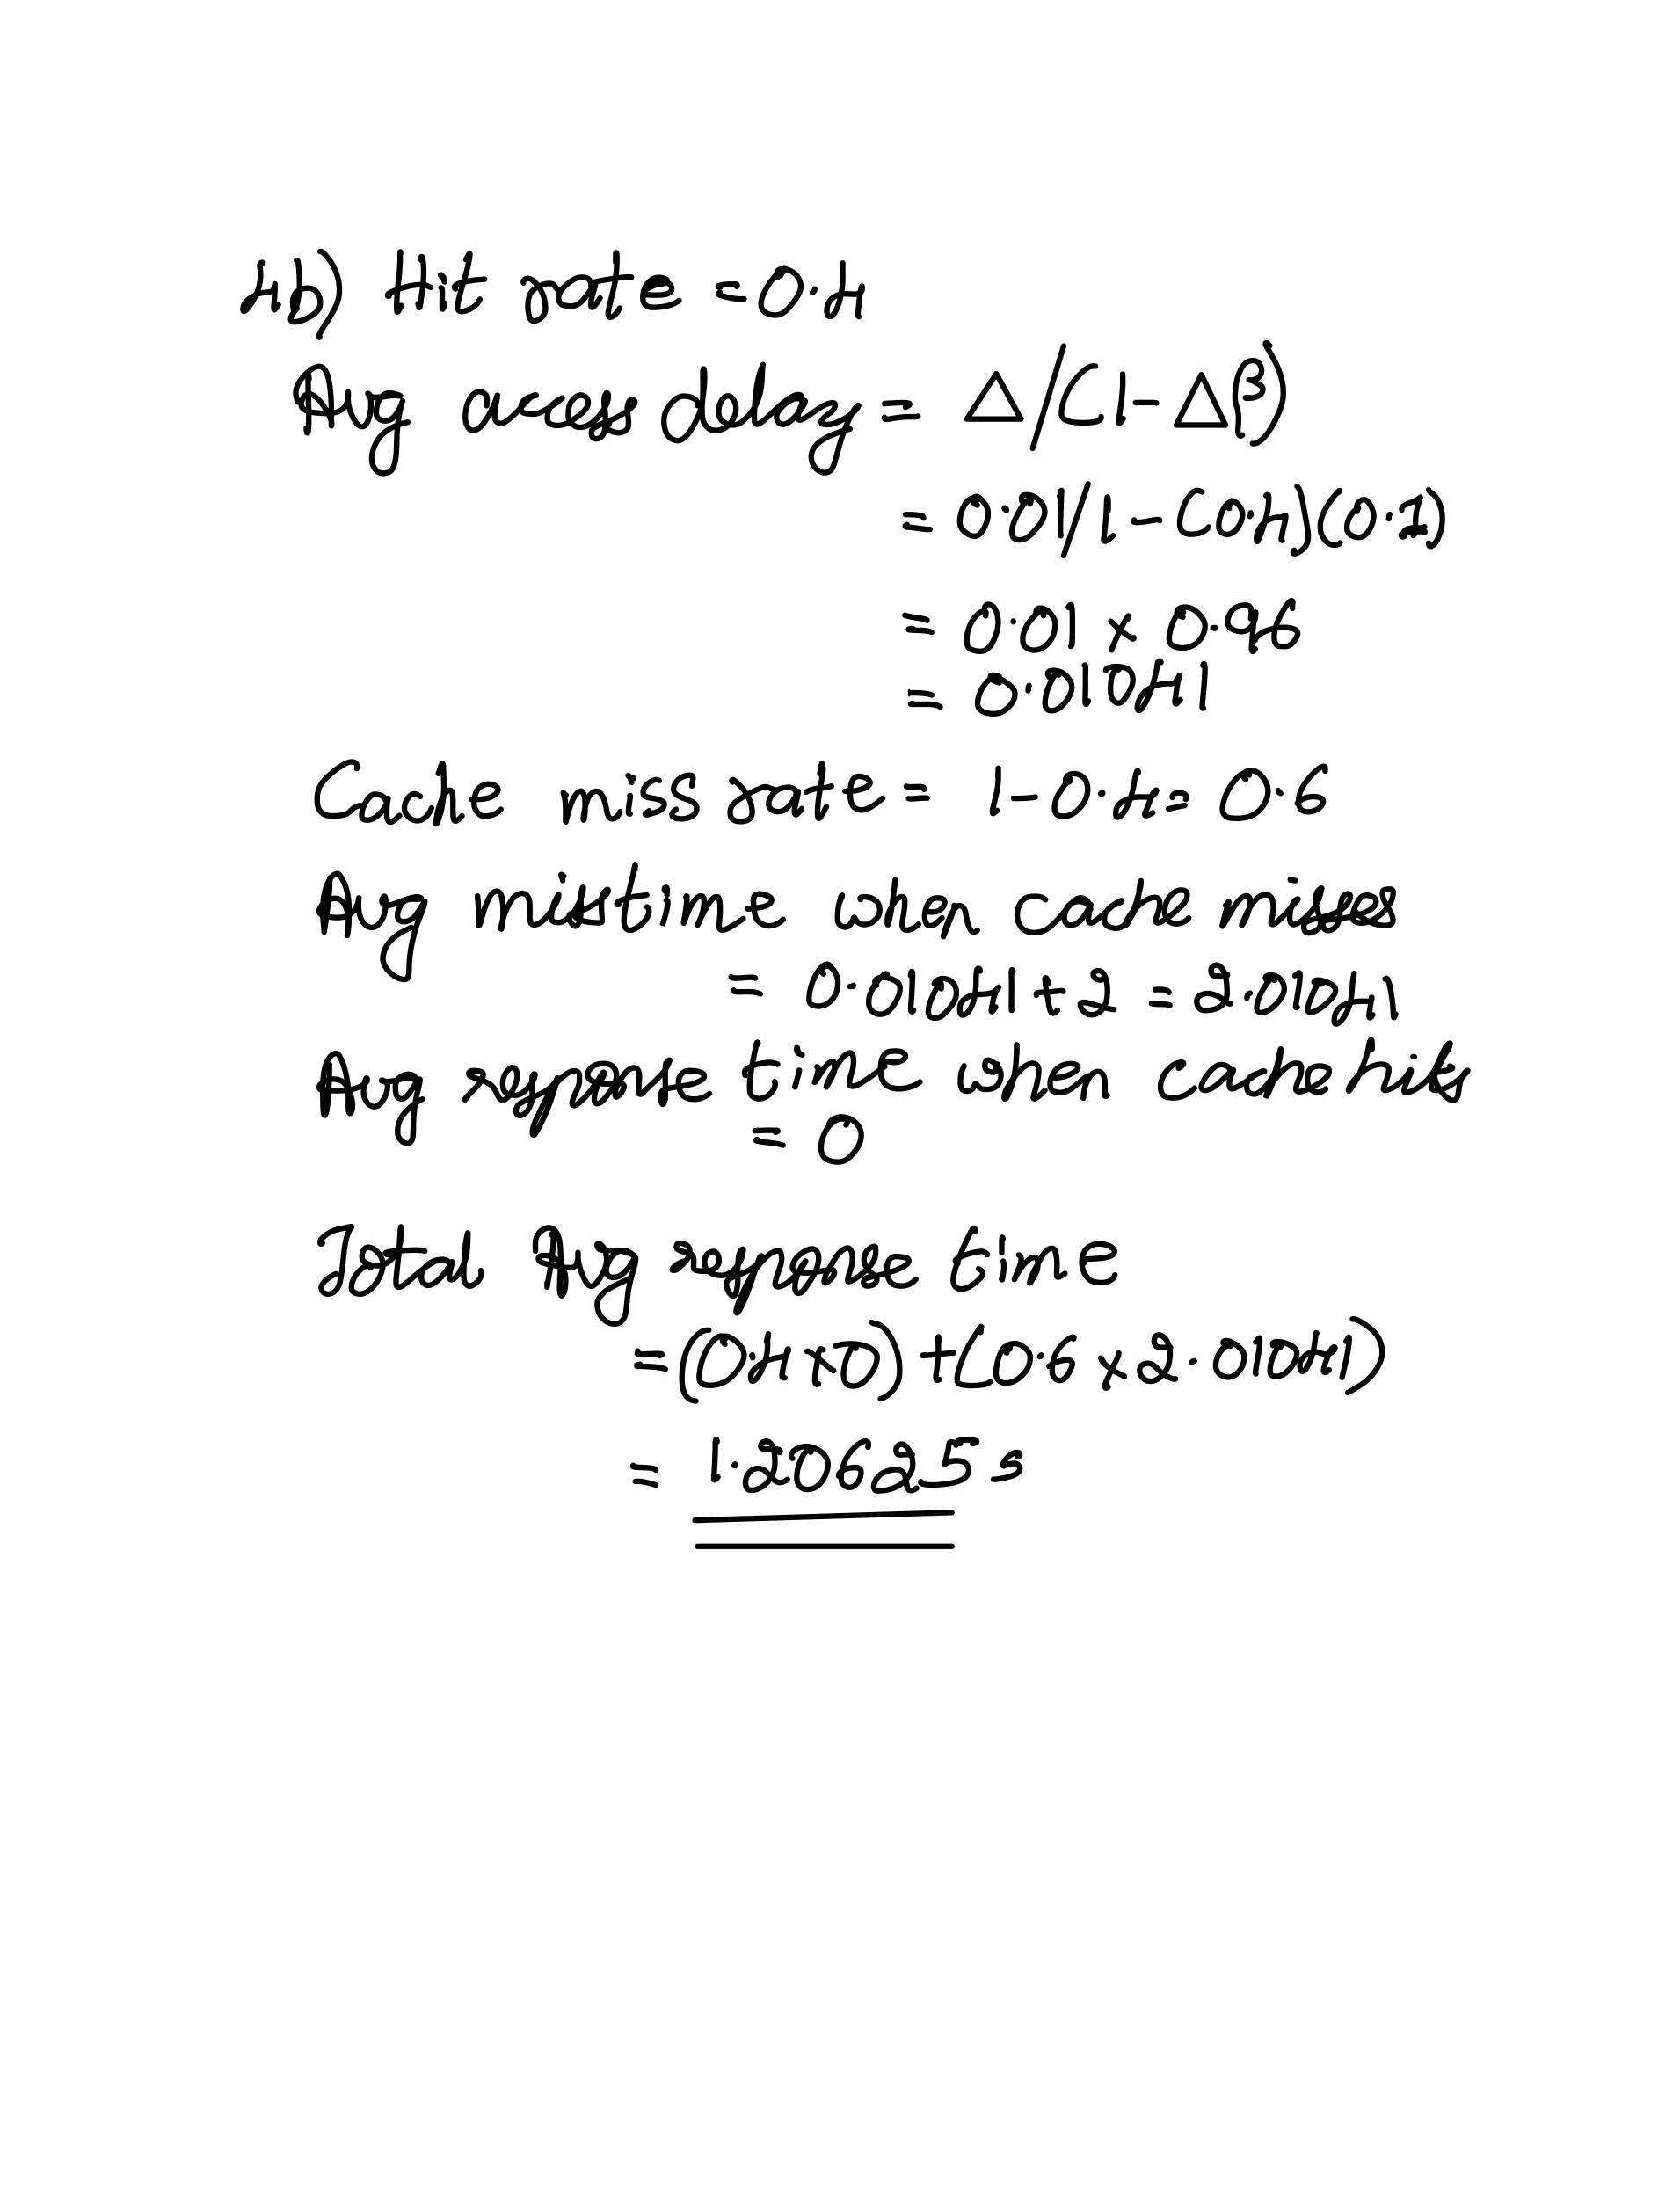 4b) Hit rate = 0.4
Avg access delay = Δ/(1-Δβ)
= 0.01/1-(0.4)(0.1)
= 0.01 x 0.96
= 0.01041
Cache miss rate = 1-0.4= 0.6
Avg time when cache misses
= 0.01041+2 = 2.01041
Avg response time when cache hits
= 0
Total Avg response time
=(0.4x0)+(0.6x2.01041)
= 1.20625s